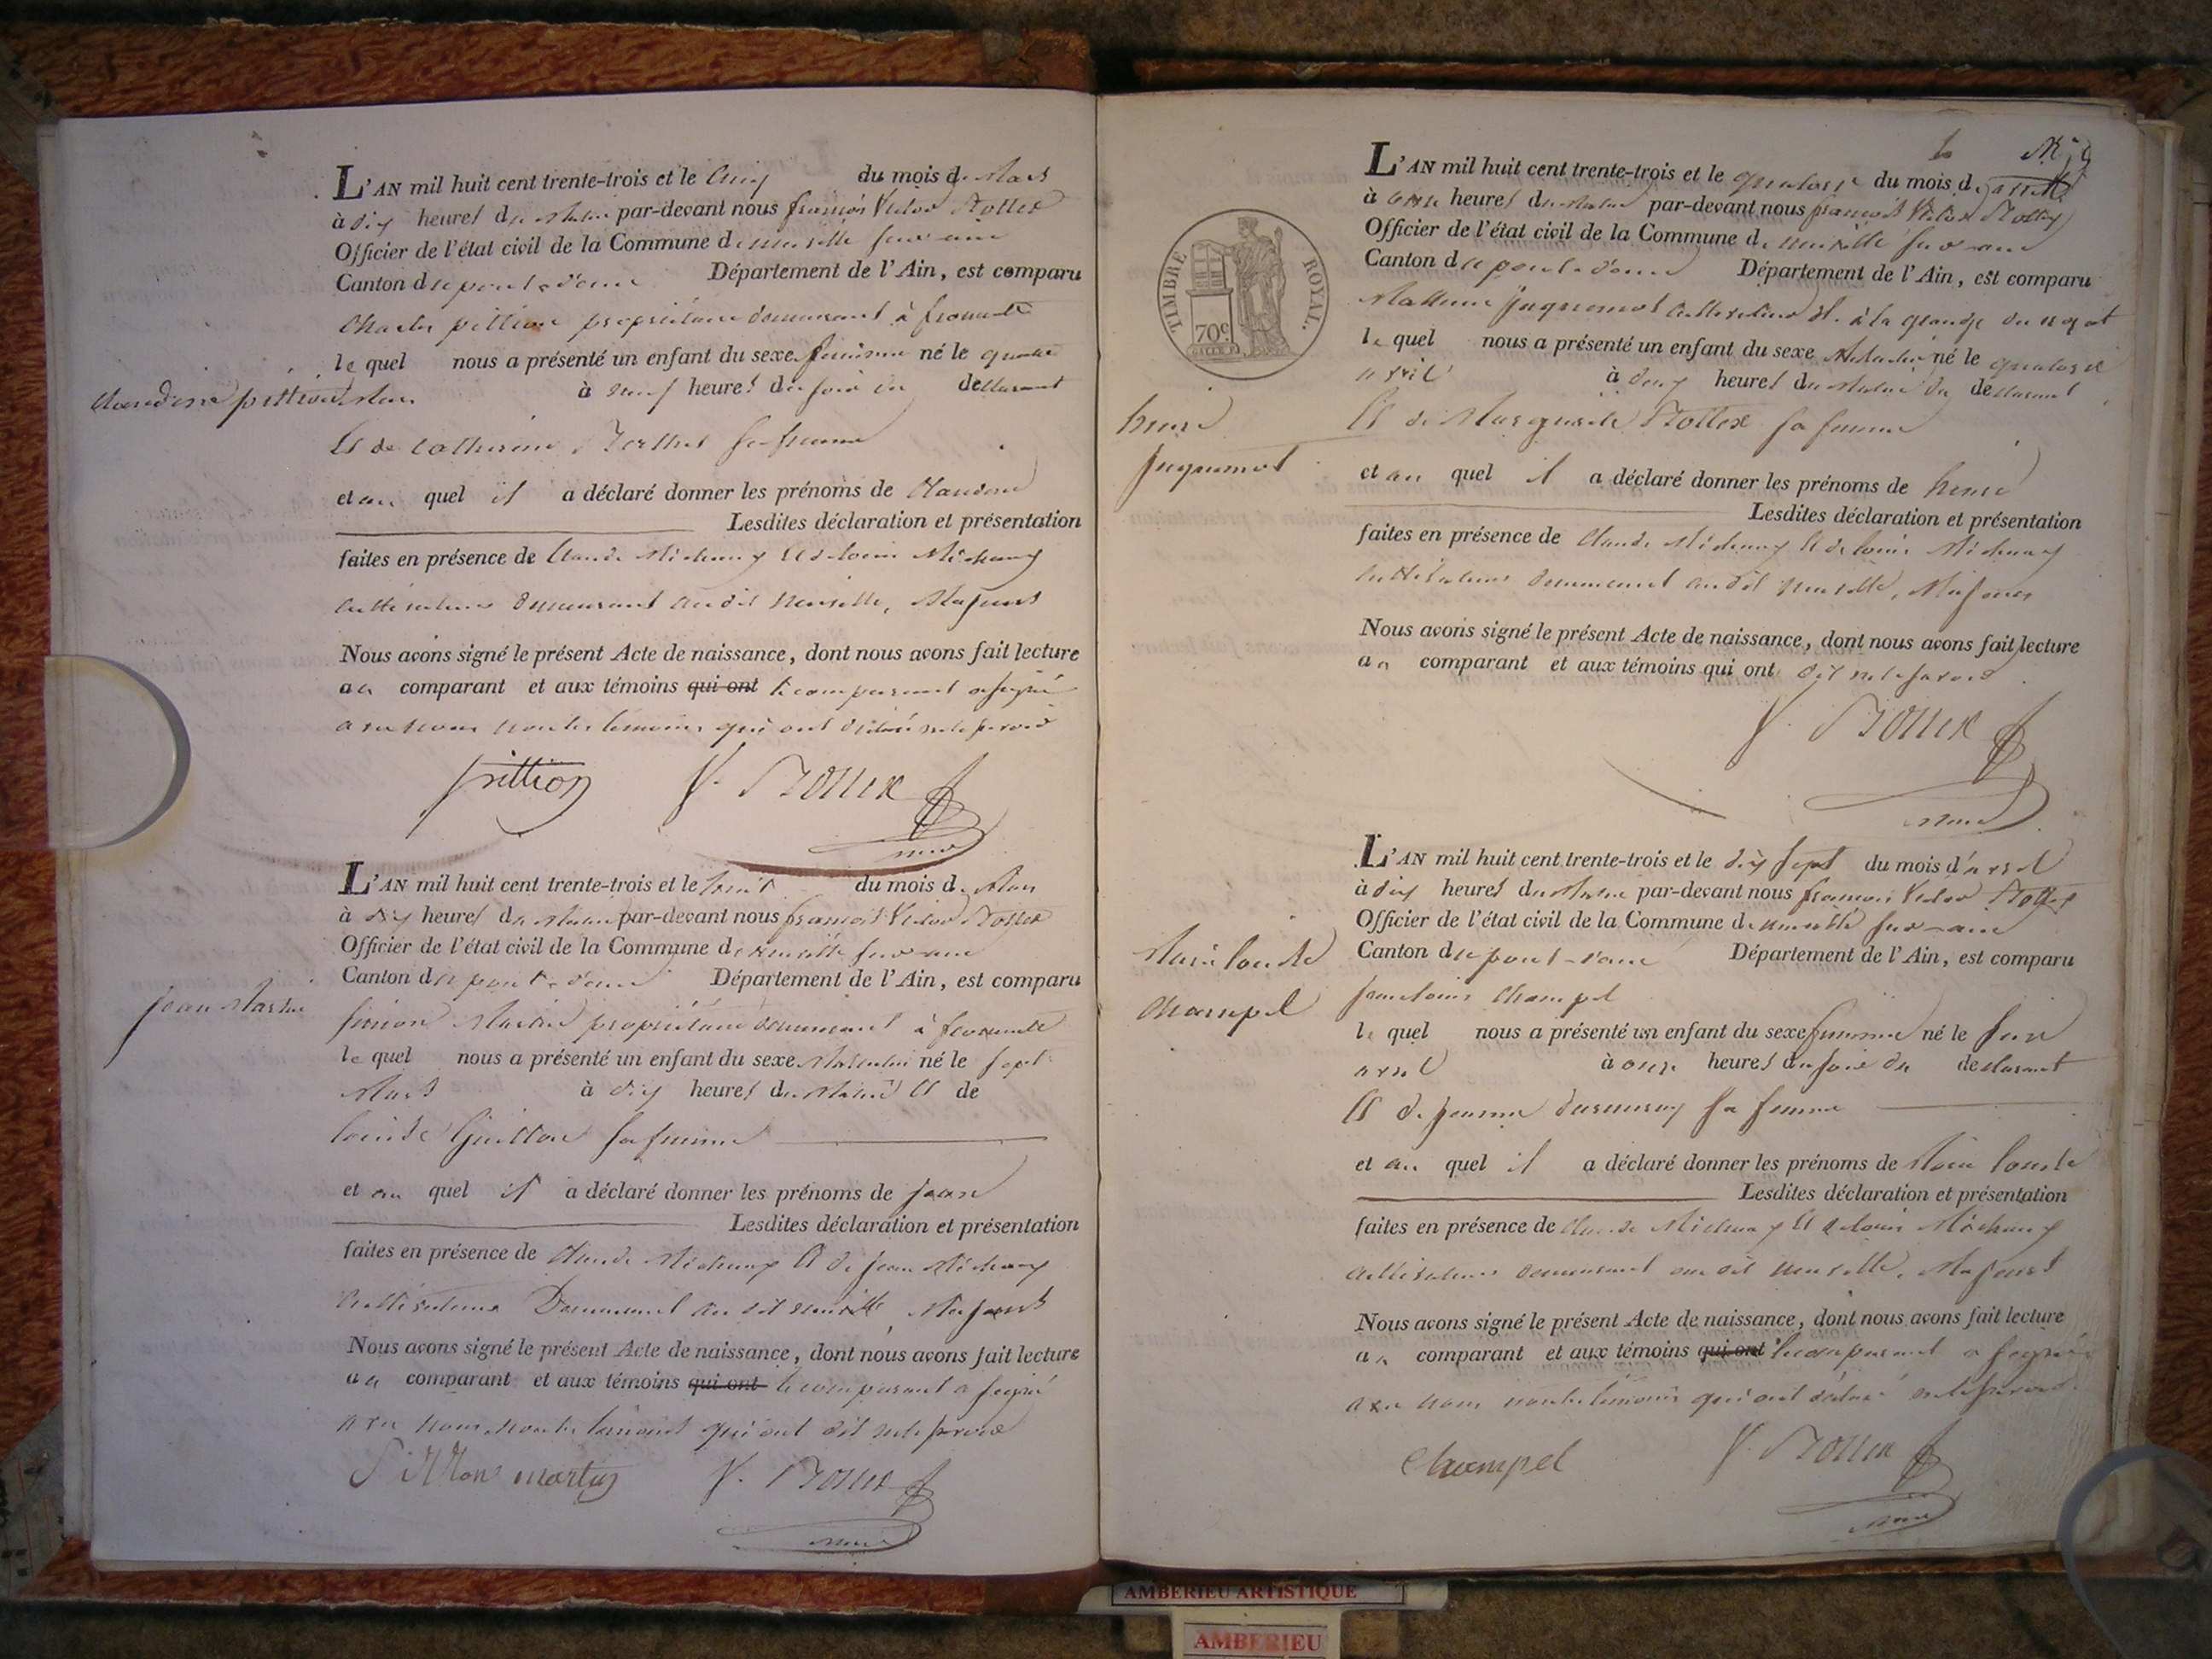 L'AN mil huit cent trente-trois et le cinq du mois de Mars
à dix heures du matin par-devant nous françois Victor Bottex
Officier de l'état civil de la Commune de neuville sur ain
Canton de pont d'ain Département de l'Ain, est comparu
Charles pittion propriétaire demeurant à fromente
lequel nous a présenté un enfant du sexe feminin né le quatre
Claudine pittion
Mars à neuf heures du soir du declarant
Et de Catherine Berthet sa femme
et au quel il a déclaré donner les prénoms de Claudine
Lesdites déclaration et présentation
faites en présence de Claude Michaux Et de louis Michaux
cultivateurs demeurant audit neuville, Majeurs
Nous avons signé le présent Acte de naissance, dont nous avons fait lecture
au comparant et aux témoins qui ont le comparant a signé
avec nous non les temoins qui ont déclaré ne le savoir
pittion V. Bottex
maire
L'AN mil huit cent trente-trois et le huit du mois de Mars
à dix heures du matin par-devant nous françois Victor Bottex
Officier de l'état civil de la Commune de neuville sur ain
Canton de pont d'ain Département de l'Ain, est comparu
jean Martin
simon Martin propriétaire demeurant à fromente
lequel nous a présenté un enfant du sexe Masculin né le sept
Mars à dix heures du Matin Et de
louise Guitton sa femme
et au quel il a déclaré donner les prénoms de jean
Lesdites déclaration et présentation
faites en présence de Claude Michaux Et de jean Michaux
cultivateurs Demeurant au dit neuville Majeurs
Nous avons signé le présent Acte de naissance, dont nous avons fait lecture
au comparant et aux témoins qui ont le comparant a signé
avec nous non les temoins qui ont dit ne le savoir
martin V. Bottex
maire
L'AN mil huit cent trente-trois et le quatorze du mois d'avril
à onze heures du matin par-devant nous françois Victor Bottex
Officier de l'état civil de la Commune de neuville sur ain
Canton de pont d'ain Département de l'Ain, est comparu
TIMBRE ROYAL.
70c.
juquemot cultivateur à la grange du
lequel nous a présenté un enfant du sexe Masculin né le quatorze
avril à deux heures du Matin du declarant
henri
juquemot
Et de Marguerite Bottex sa femme
et au quel il a déclaré donner les prénoms de henri
Lesdites déclaration et présentation
faites en présence de Claude Michaux Et de louis Michaux
cultivateurs demeurant audit neuville, Majeurs
Nous avons signé le présent Acte de naissance, dont nous avons fait lecture
au comparant et aux témoins qui ont dit ne le savoir
V. Bottex
maire
L'AN mil huit cent trente-trois et le dix sept du mois d'avril
à dix heures du Matin par-devant nous françois Victor Bottex
Officier de l'état civil de la Commune de neuville sur ain
Canton de pont d'ain Département de l'Ain, est comparu
Marie louise
Champel
jean louis Champel
lequel nous a présenté un enfant du sexe feminin né le seize
avril à onze heures du soir du declarant
Et de jeanne sa femme
et au quel il a déclaré donner les prénoms de Marie louise
Lesdites déclaration et présentation
faites en présence de Claude Michaux Et de louis Michaux
cultivateurs demeurant au dit neuville, Majeurs
Nous avons signé le présent Acte de naissance, dont nous avons fait lecture
au comparant et aux témoins qui ont le comparant a signé
avec nous non les temoins qui ont déclaré ne le savoir
Champel V. Bottex
maire
AMBERIEU ARTISTIQUE
AMBERIEU